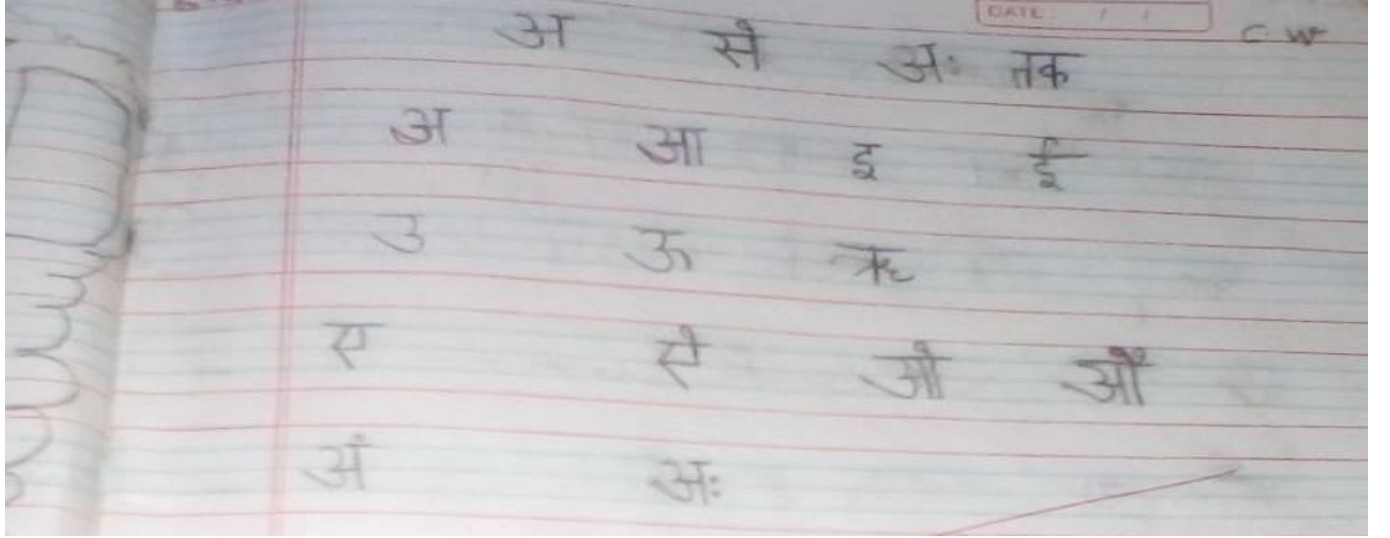 DATE: / / C.W
अ से अः तक
अ आ इ ई
उ ऊ ऋ
ए ऐ ओ औ
अं अः